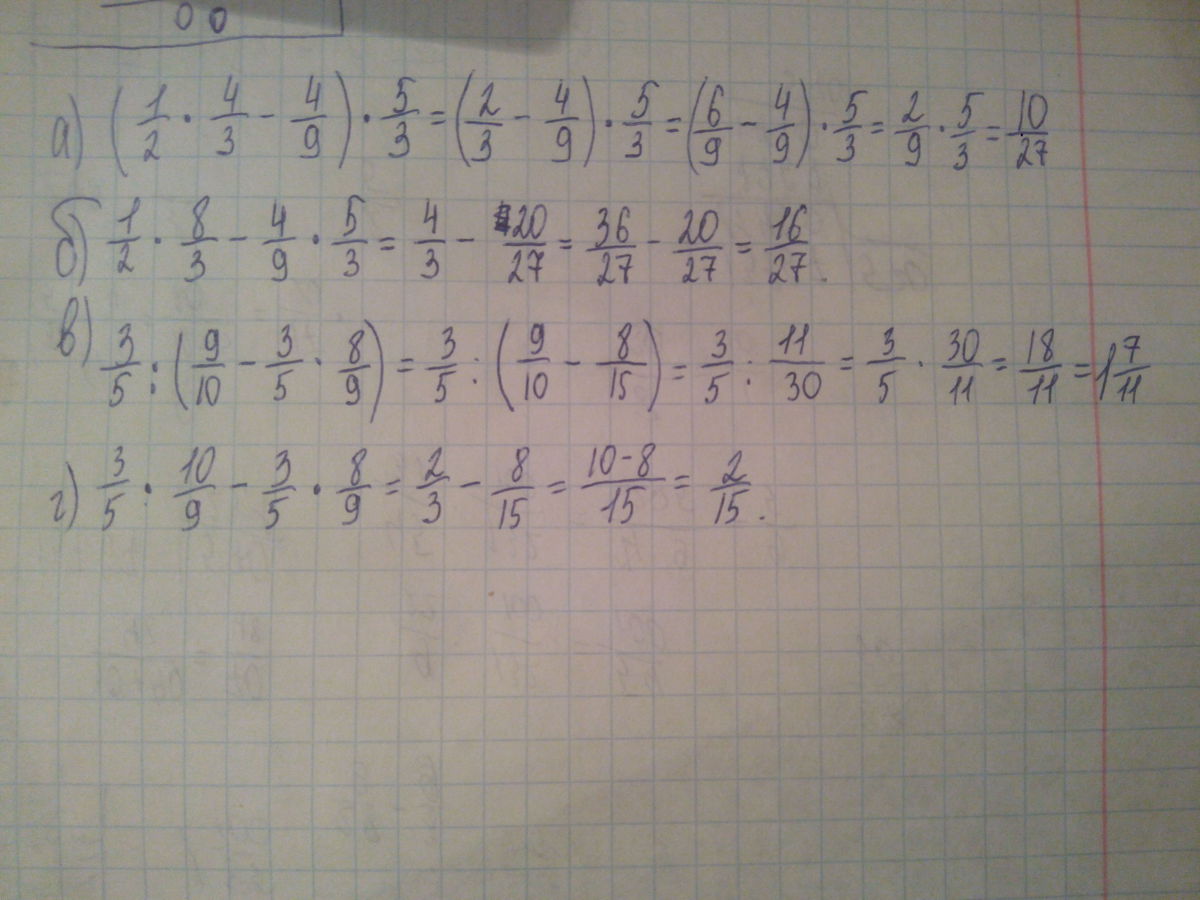 0 0
а) (1/2 · 4/3 − 4/9) · 5/3 = (2/3 − 4/9) · 5/3 = (6/9 − 4/9) · 5/3 = 2/9 · 5/3 = 10/27
б) 1/2 · 8/3 − 4/9 · 5/3 = 4/3 − 20/27 = 36/27 − 20/27 = 16/27.
в) 3/5 : (9/10 − 3/5 · 8/9) = 3/5 : (9/10 − 8/15) = 3/5 : 11/30 = 3/5 · 30/11 = 18/11 = 1 7/11
г) 3/5 · 10/9 − 3/5 · 8/9 = 2/3 − 8/15 = (10−8)/15 = 2/15.